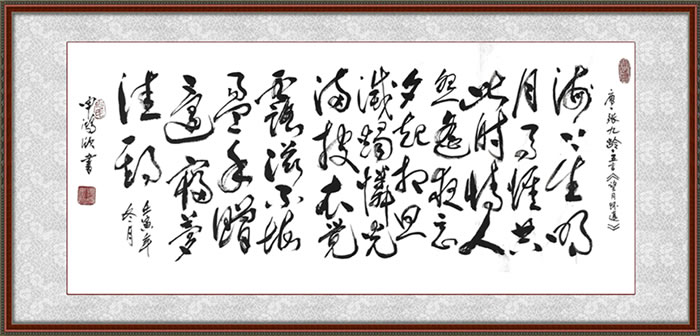 唐·张九龄·五言《望月怀远》
海上生明
月天涯共
此时情人
怨遥夜竟
夕起相思
滅燭憐光
满披衣觉
露滋不堪
盈手贈
还寝夢
佳期
壬寅年
冬月
書